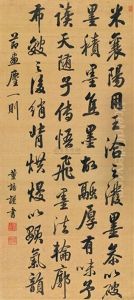 米襄陽用王洽之潑墨參以破
墨積墨焦墨故融厚有味予
讀天隨子傳悟飛墨法輪廓
布皴之後綃背烘熳以顯氣韻
節畫塵一則
董誥謹書